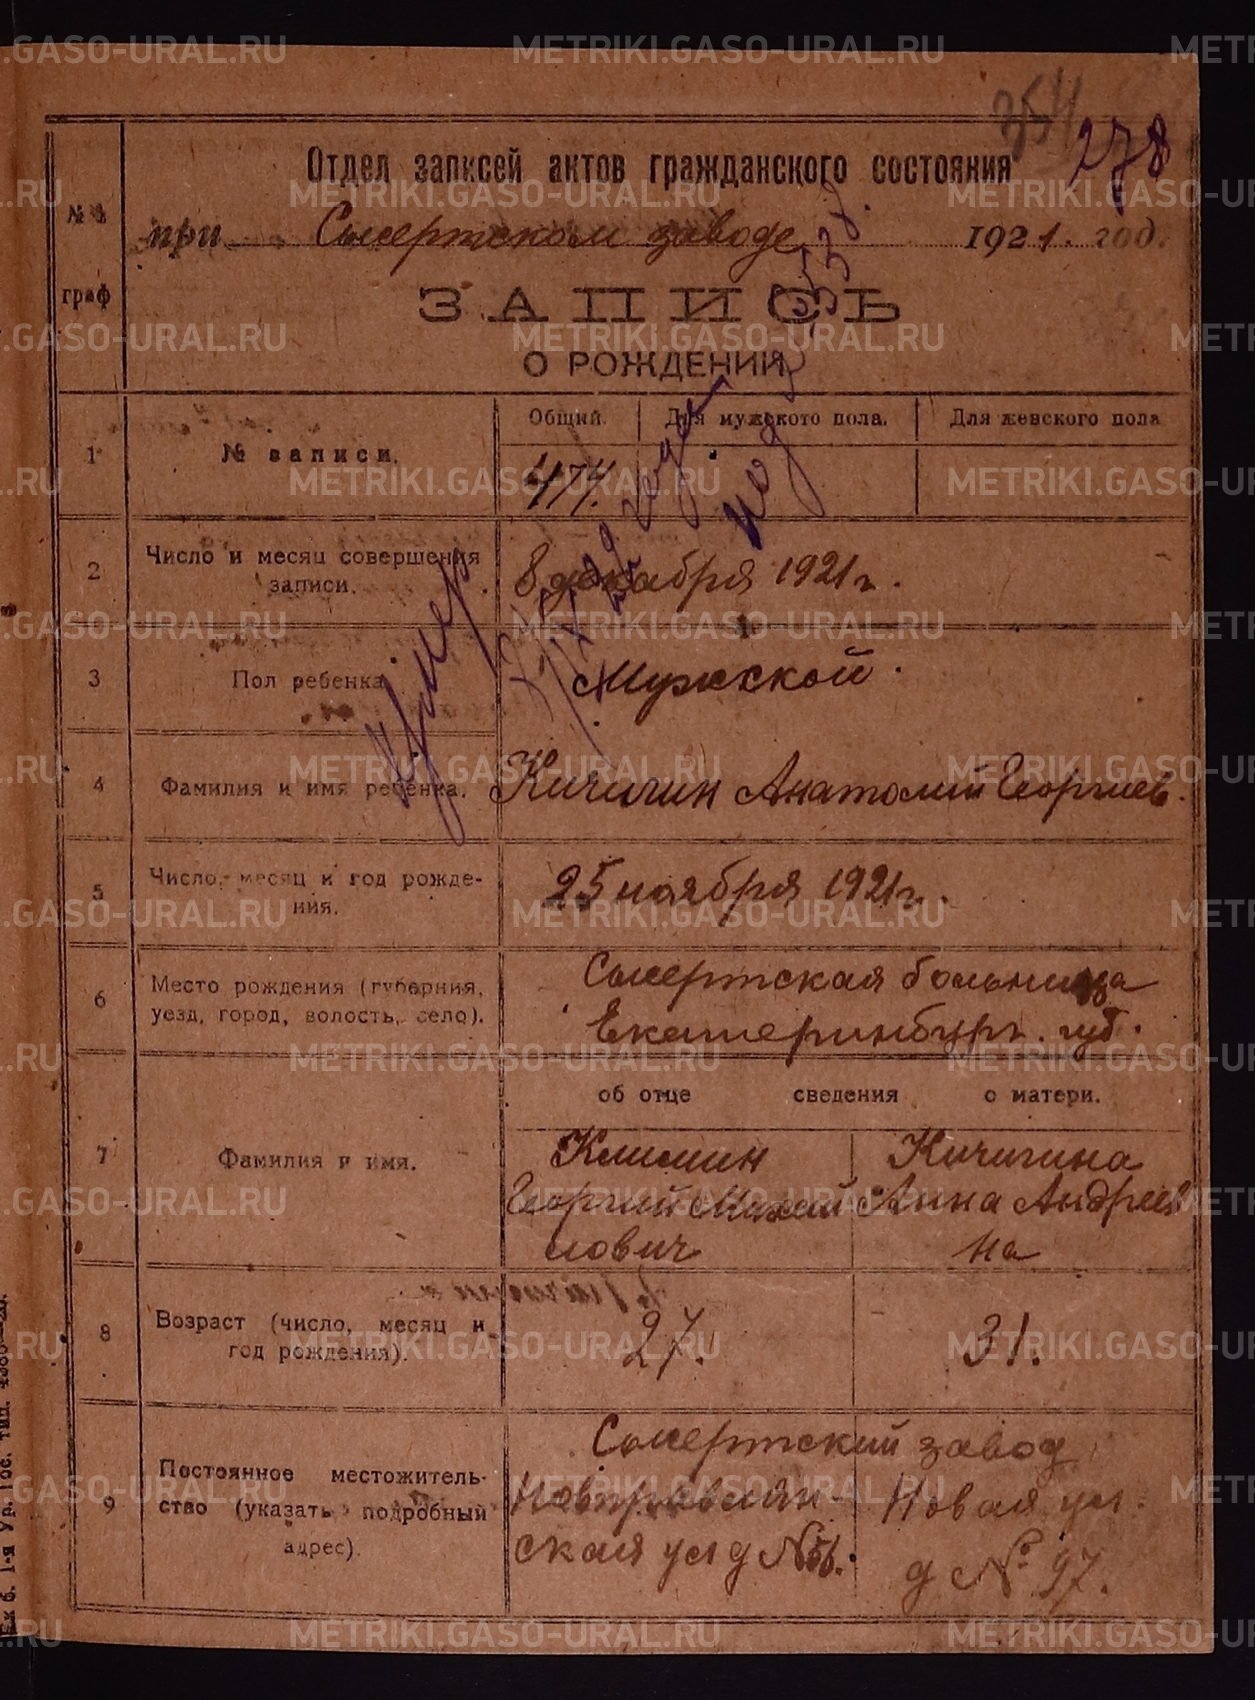 354
278
Отдел запксей актов гражданского состояния
при Сысертском заводе 1921. год.
№№
граф
ЗАПИСЬ
О РОЖДЕНИИ
Общий. Для мужского пола. Для женского пола
1 № записи.
477.
2 Число и месяц совершения записи.
8 декабря 1921 г.
3 Пол ребенка
Мужской.
4 Фамилия и имя ребенка.
Кичигин Анатолий Георгиев.
5 Число, месяц и год рожде-
ния.
25 ноября 1921 г.
6 Место рождения (губерния,
уезд, город, волость, село).
Сысертская больница
Екатеринбург. губ.
об отце сведения о матери.
7 Фамилия и имя.
Климин
Георгий Михай
лович
Кичигина
Анна Андреев
на
8 Возраст (число, месяц и
год рождения).
27. 31.
9 Постоянное местожитель-
ство (указать подробный
адрес).
Сысертский завод
Новая ул.
д № 97.
ская ул д №
умер
METRIKI.GASO-URAL.RU